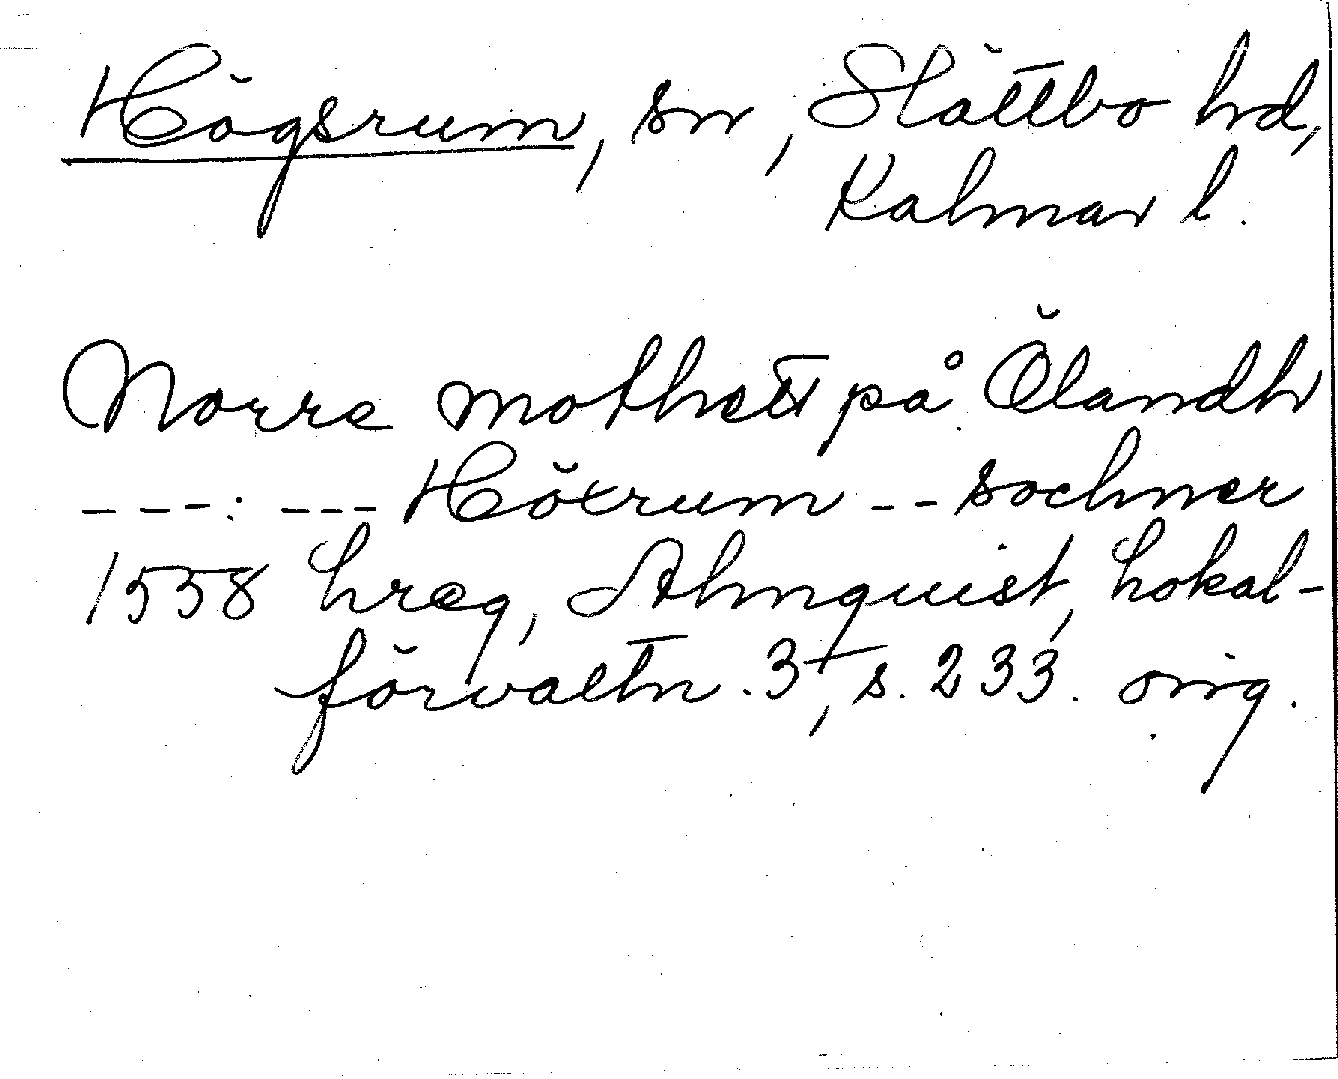 Högsrum, sn, Slättbo hd,
Kalmar l.
Norre mothett på Ölandh
---: --- Höxrum -- sochner
1558 hreg, Almquist, Lokal-
förvaltn. 3, s. 233. orig.